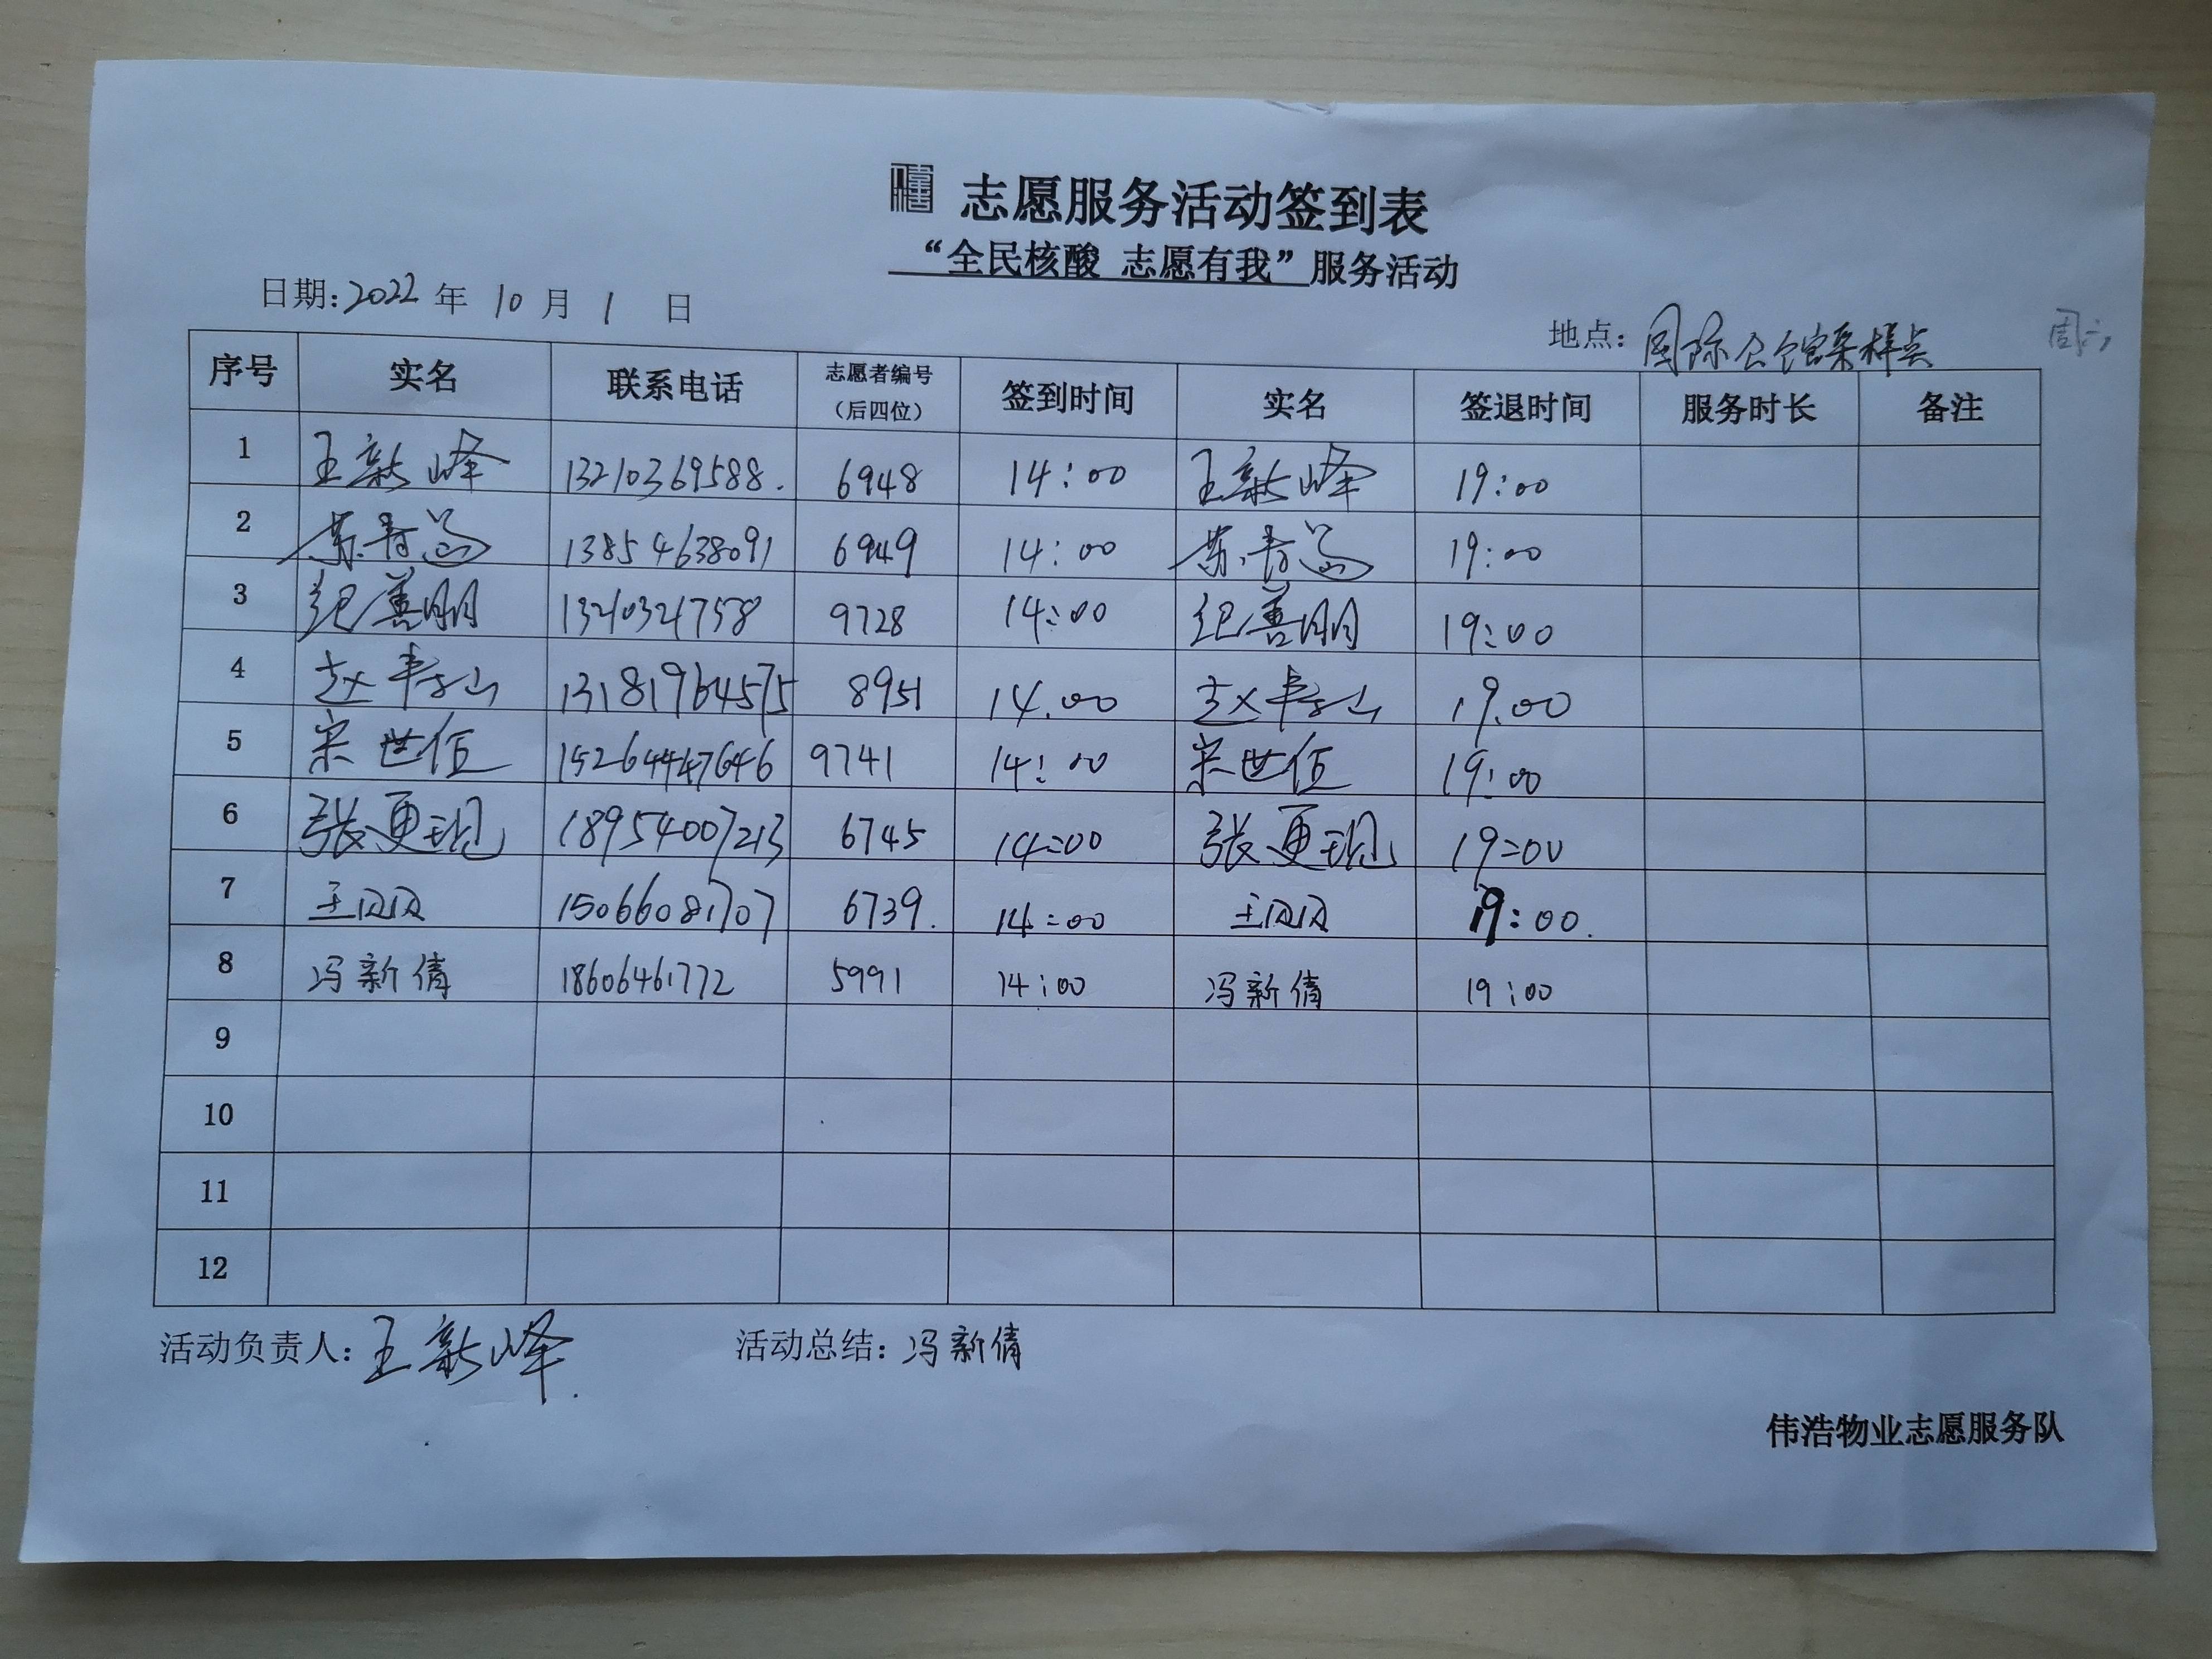 志愿服务活动签到表
“全民核酸 志愿有我”服务活动
日期:2022年10月1日
地点:国际公馆采样点 周六
序号 实名 联系电话 志愿者编号（后四位） 签到时间 实名 签退时间 服务时长 备注
1 王新峰 13210369588. 6948 14:00 王新峰 19:00
2 13854638091 6949 14:00 19:00
3 纪善明 13210321758 9728 14:00 纪善明 19:00
4 赵 13181964575 8951 14.00 赵 19.00
5 宋世 15264447646 9741 14:00 宋世 19:00
6 张更 18954007213 6745 14:00 张更 19:00
7 王 15066081707 6739. 14:00 王 19:00.
8 冯新倩 18606461772 5991 14:00 冯新倩 19:00
9
10
11
12
活动负责人:王新峰. 活动总结:冯新倩
伟浩物业志愿服务队